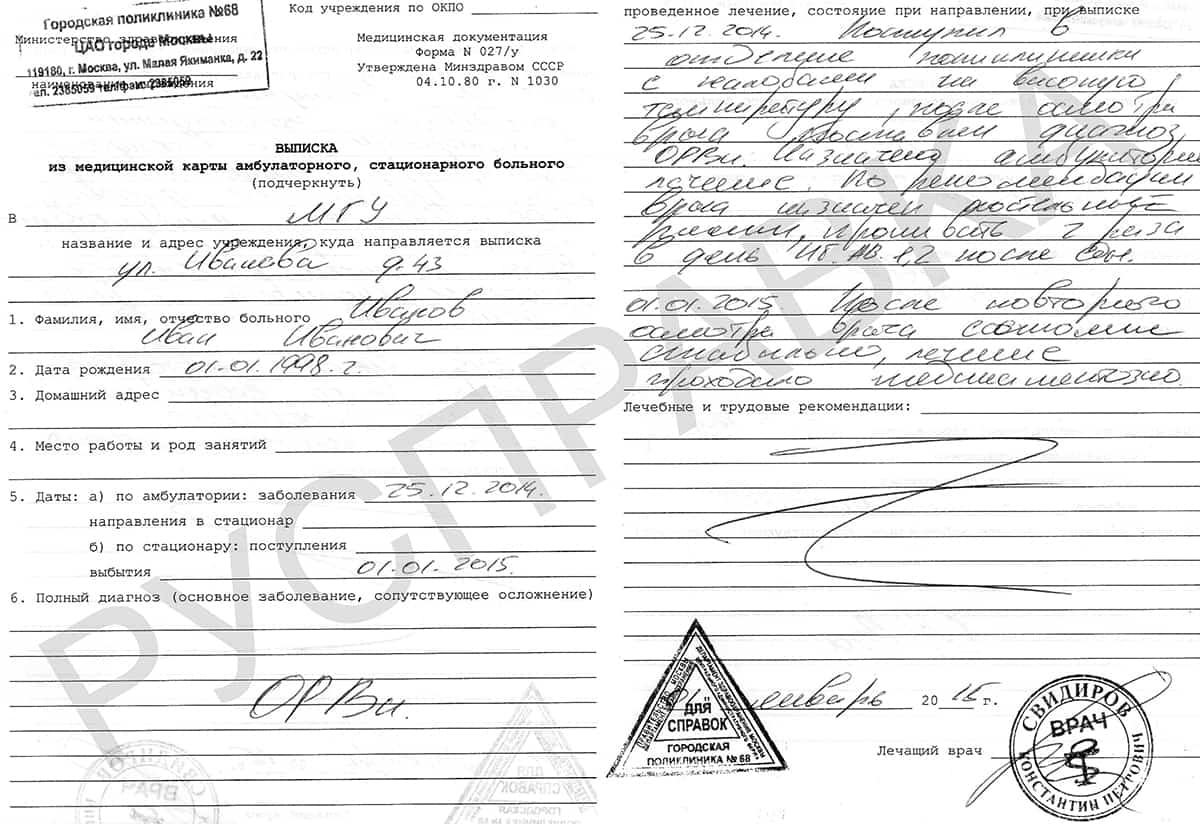 Городская поликлиника №68
ЦАО городе Москвы
119180, г. Москва, ул. Малая Якиманка, д. 22
Министерство здравоохранения
наименование учреждения
Код учреждения по ОКПО
Медицинская документация
Форма N 027/у
Утверждена Минздравом СССР
04.10.80 г. N 1030
ВЫПИСКА
из медицинской карты амбулаторного, стационарного больного
(подчеркнуть)
В МГУ
название и адрес учреждения, куда направляется выписка
ул. Иванова д. 43
1. Фамилия, имя, отчество больного Иванов
Иван Иванович
2. Дата рождения 01.01.1998 г.
3. Домашний адрес
4. Место работы и род занятий
5. Даты: а) по амбулатории: заболевания 25.12.2014.
направления в стационар
б) по стационару: поступления
выбытия 01.01.2015.
6. Полный диагноз (основное заболевание, сопутствующее осложнение)
ОРВи.
проведенное лечение, состояние при направлении, при выписке
25.12.2014. Поступил в
отделение поликлиники
с жалобами на высокую
температуру, после осмотра
врача поставлен диагноз
ОРВи. Назначено
лечение. По рекомендации
врача назначен
2 раза
в день после еды.
01.01.2015 После повторного
осмотра врача состояние
стабильно, лечение
проходило медикаментозно.
Лечебные и трудовые рекомендации:
январь 2015 г.
Лечащий врач
ДЛЯ
СПРАВОК
ГОРОДСКАЯ
ПОЛИКЛИНИКА № 68
СВИДИРОВ
ВРАЧ
КОНСТАНТИН ПЕТРОВИЧ
РУСПРАВКА